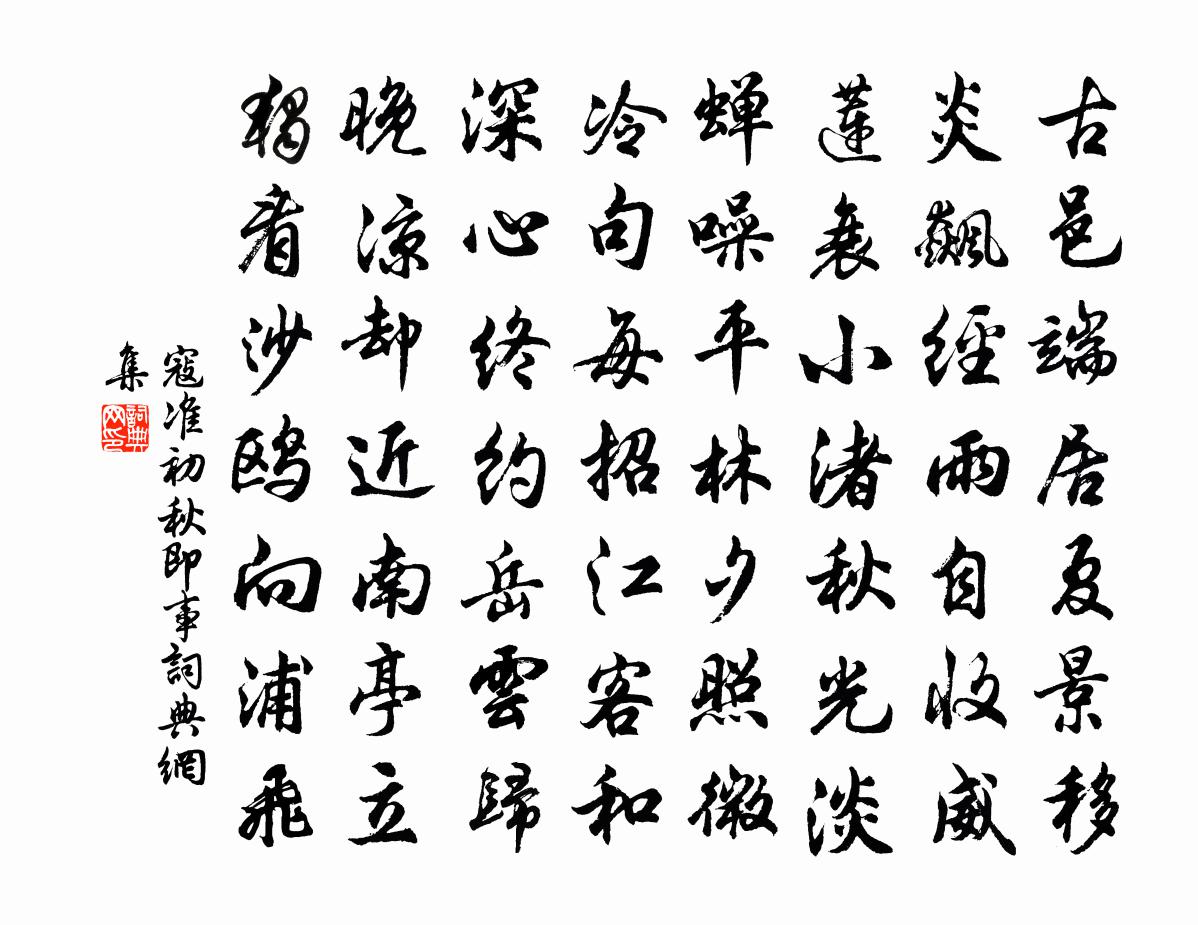 古邑端居夏景移
炎飙經雨自收威
蓮衰小渚秋光淡
蝉噪平林夕照微
冷句每招江客和
深心终约岳雲歸
晚凉却近南亭立
獨看沙鸥向浦飛
寇准初秋即事詞典網
集
詞典
网印